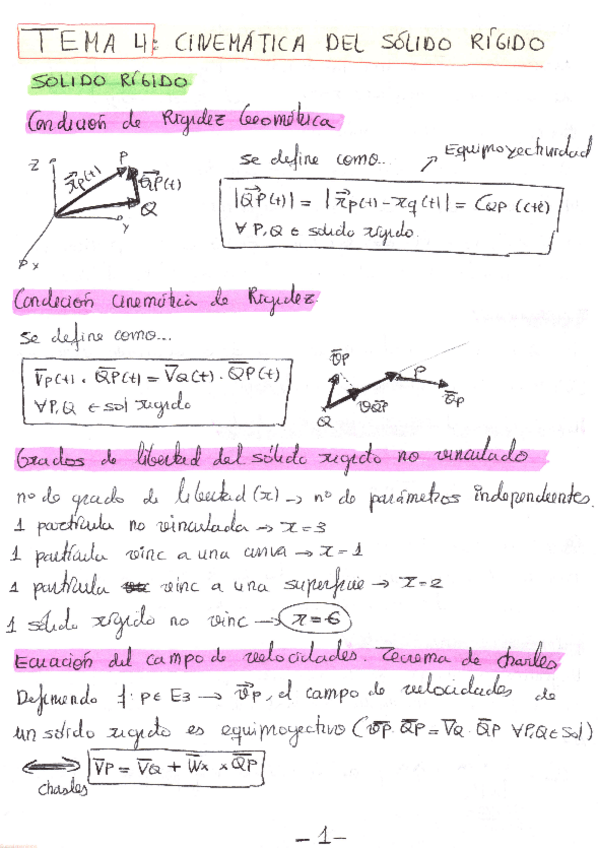 TEMA 4: CINEMÁTICA DEL SÓLIDO RÍGIDO
SOLIDO RÍGIDO
Condición de Rigidez Geométrica
Z
P
xp(t)
QP(t)
Q
Y
X
se define como..
Equiproyectividad
|QP(t)| = |xp(t) - xq(t)| = CQP (cte)
∀ P,Q ∈ sólido rígido.
Condición cinemática de Rigidez
se define como...
VP(t) · QP(t) = VQ(t) · QP(t)
∀P,Q ∈ sol rígido
vP
P
vQP
Q
vP
Grados de libertad del sólido rígido no vinculado
nº de grado de libertad (x) → nº de parámetros independientes.
1 partícula no vinculada → x=3
1 partícula vinc a una curva → x=1
1 partícula vinc a una superficie → x=2
1 sólido rígido no vinc → x=6
Ecuación del campo de velocidades. Teorema de Charles
Definiendo f: P∈ E3 → vP, el campo de velocidades de
un sólido rígido es equiproyectivo (vP · QP = VQ · QP ∀P,Q∈ Sol)
⟷ VP = VQ + Wx × QP
Chasles
-1-